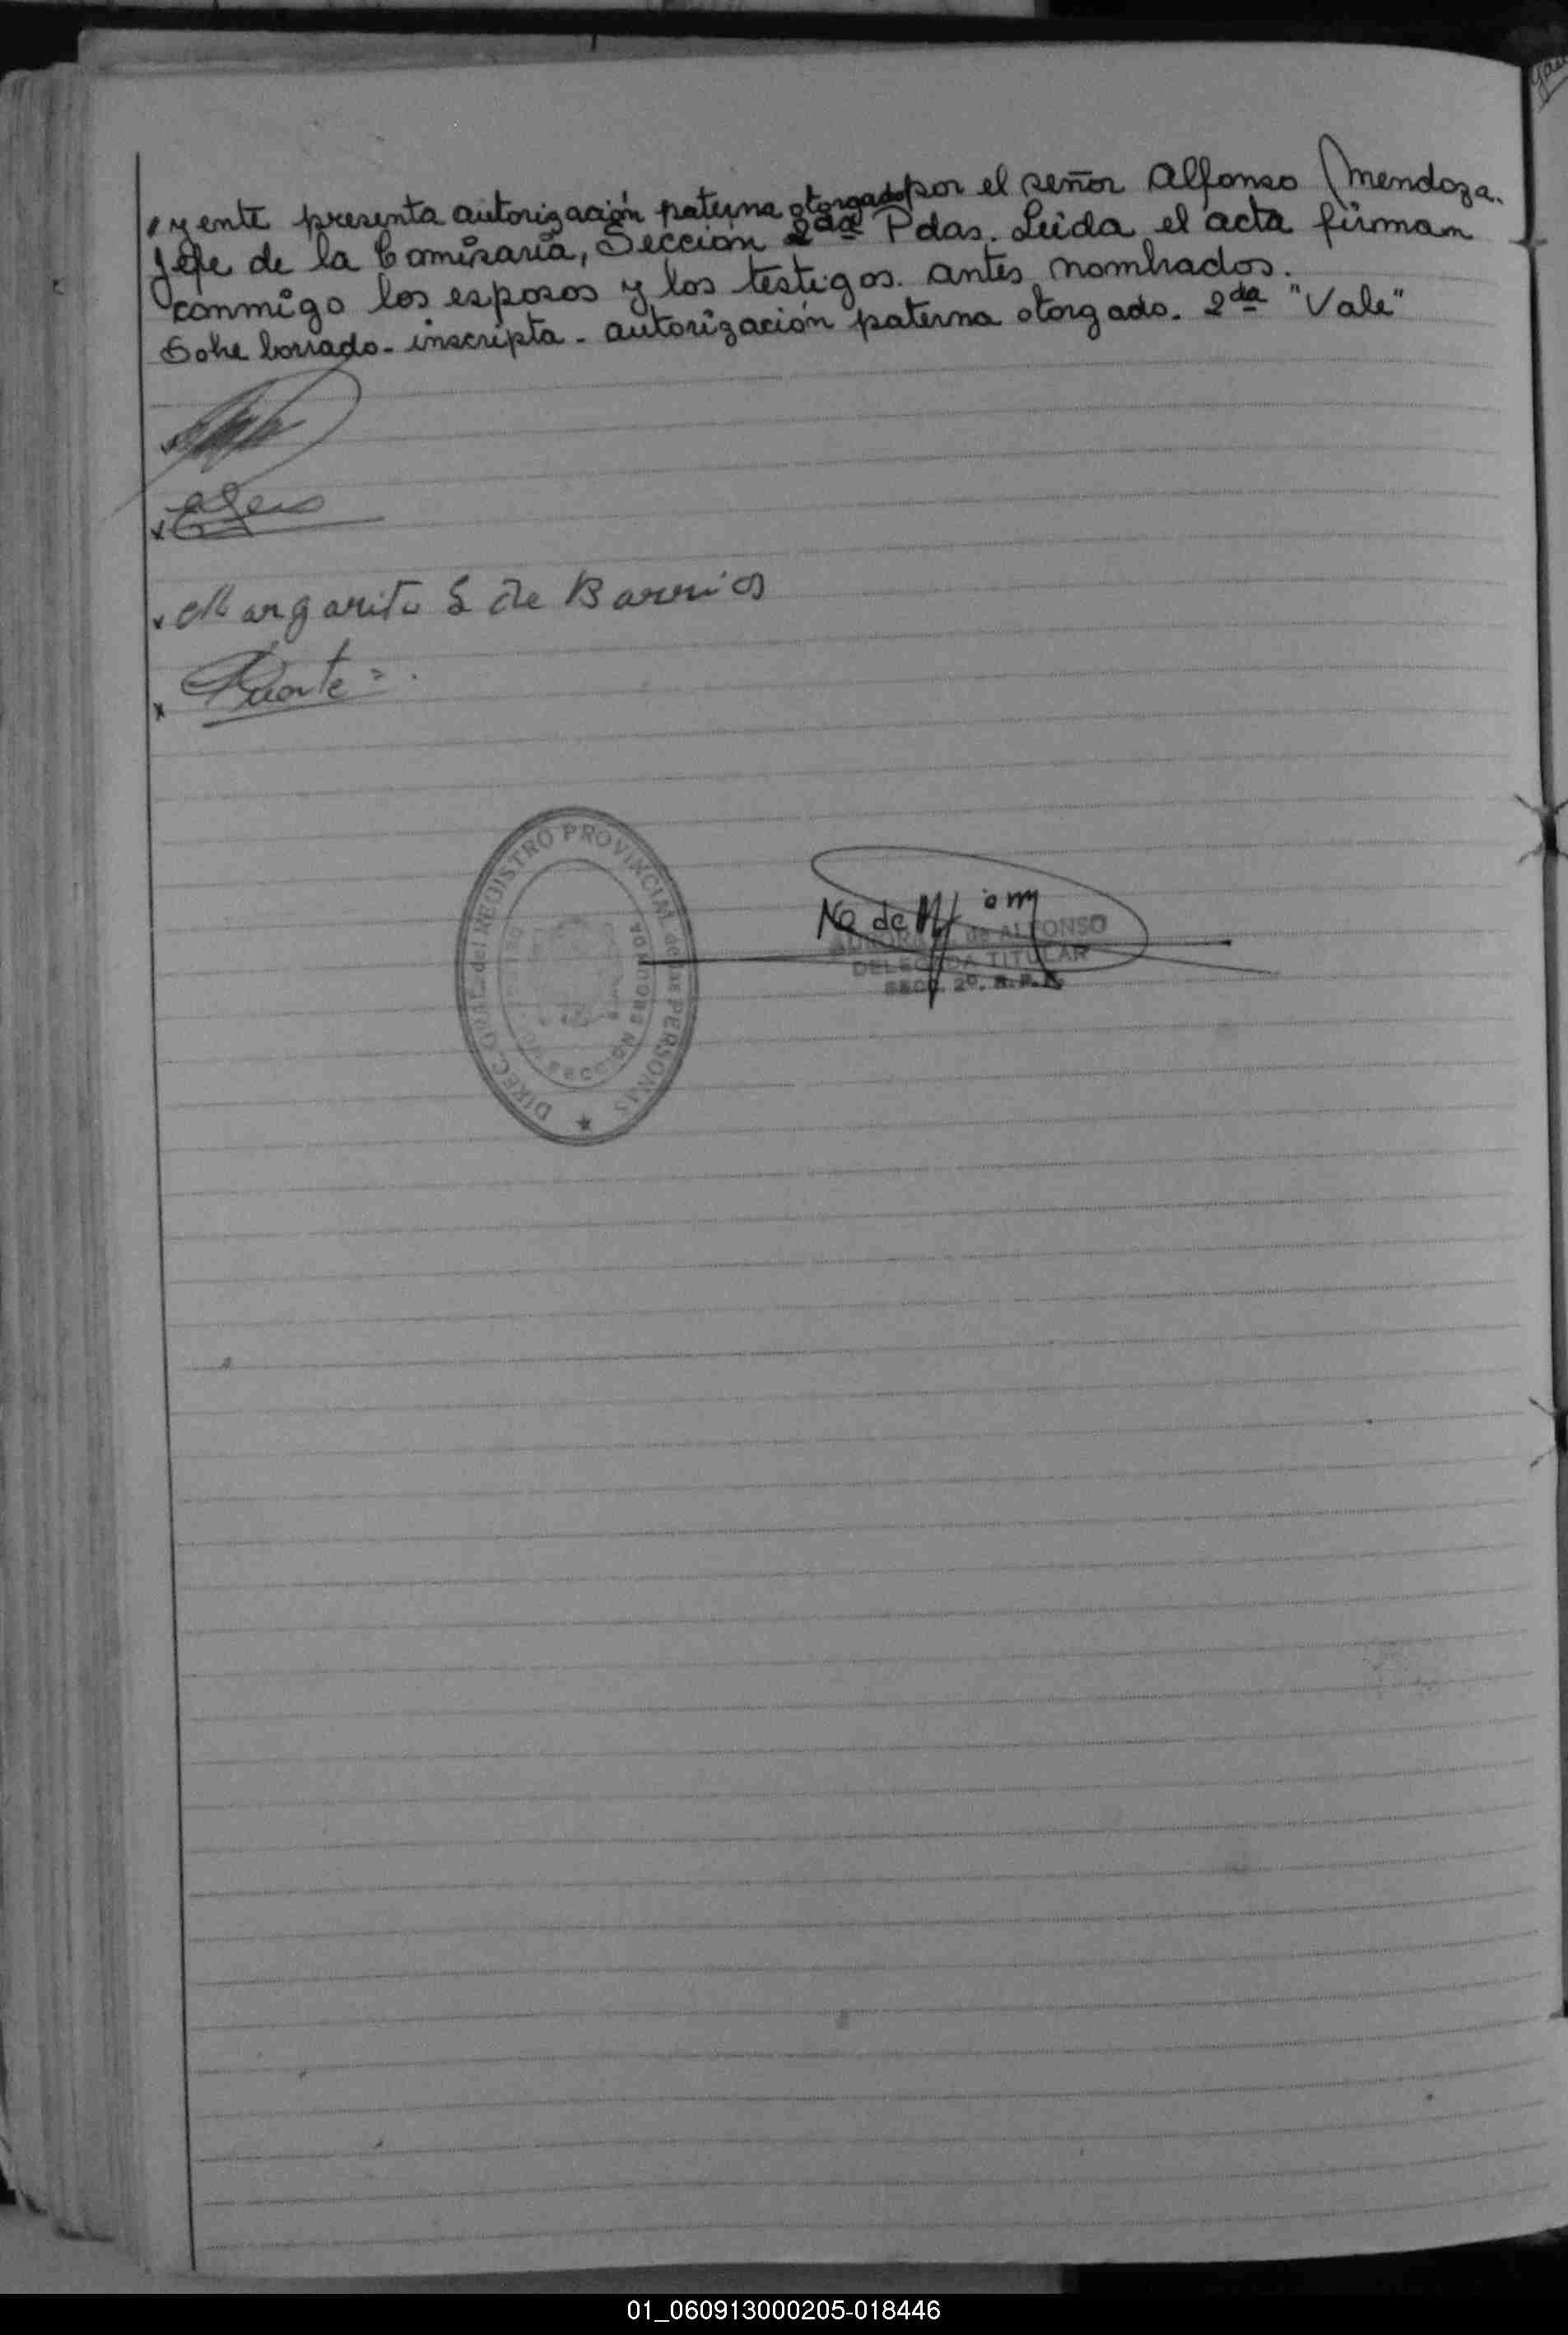 yente presenta autorización paterna otorgado por el señor Alfonso Mendoza.
Jefe de la Comisaria, Sección 2da Pdas. Leida el acta firman
conmigo los esposos y los testigos antes nombrados.
Sobre borrado - inscripta - autorización paterna otorgado. 2da "Vale"
Margarita S de Barrios
DIREC. GRAL. del REGISTRO PROVINCIAL de las PERSONAS
SECCION SEGUNDA
de ALFONSO
DELEGADA TITULAR
SECC. 2º. R.P.P.
01_060913000205-018446